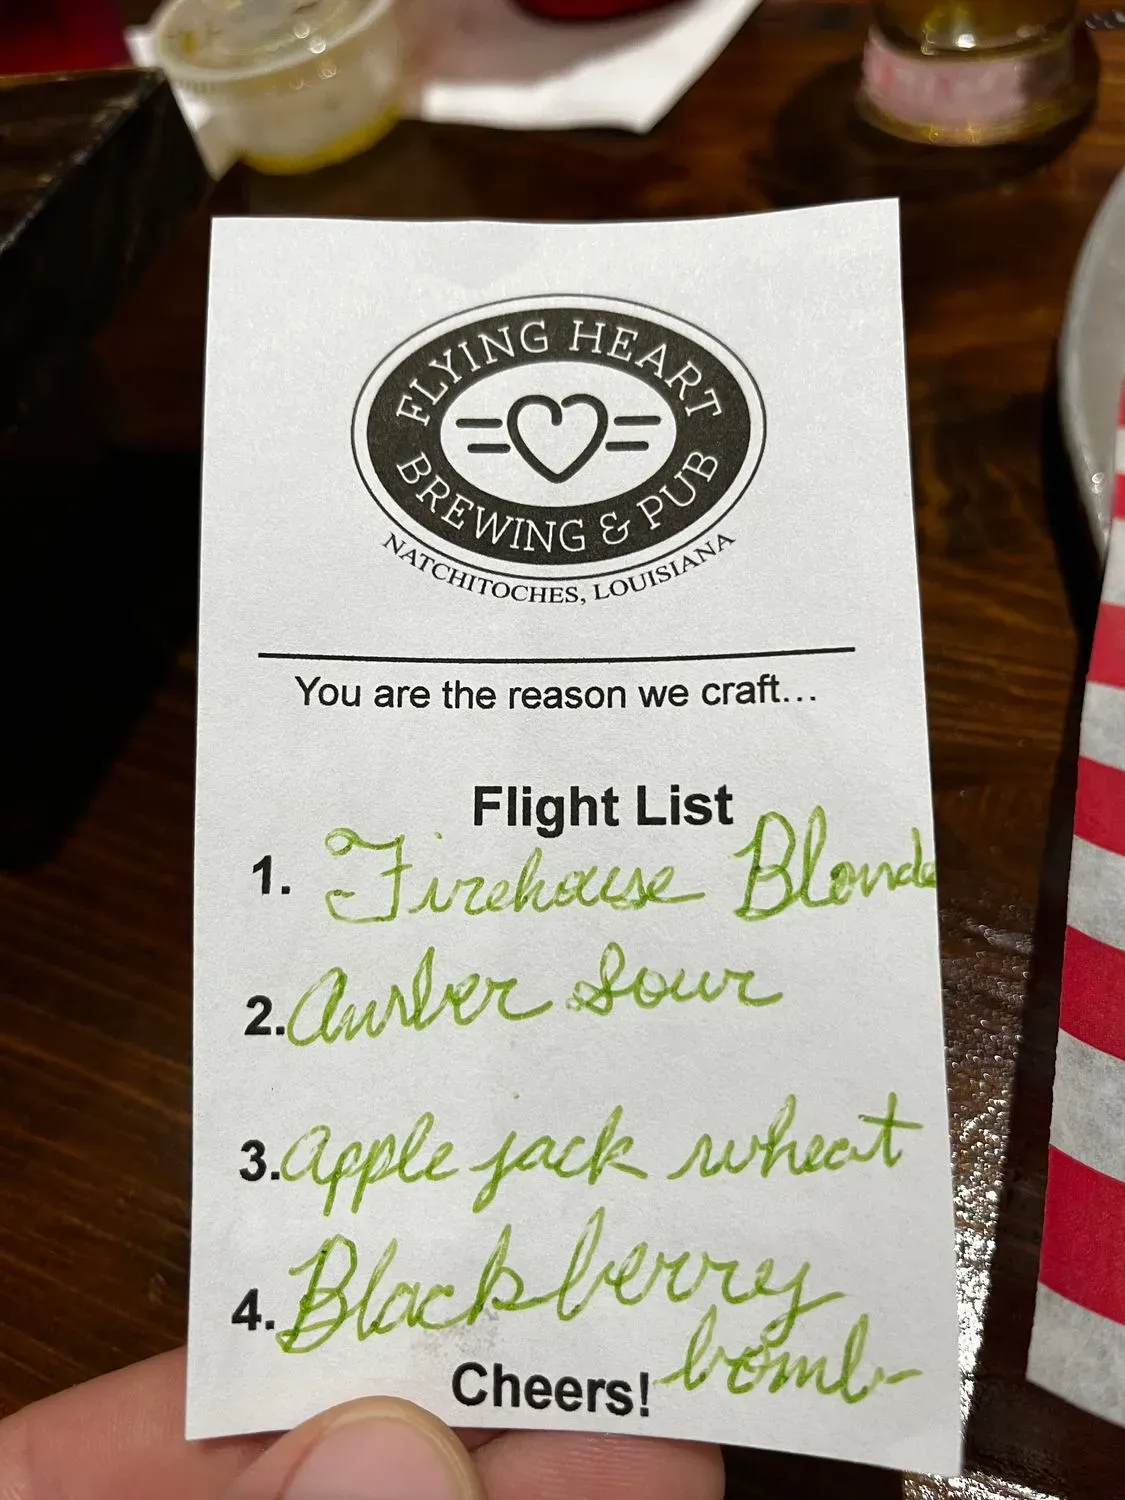 FLYING HEART
BREWING & PUB
NATCHITOCHES, LOUISIANA
You are the reason we craft...
Flight List
1. Firehouse Blonde
2. Amber Sour
3. Apple jack wheat
4. Blackberry
bomb
Cheers!